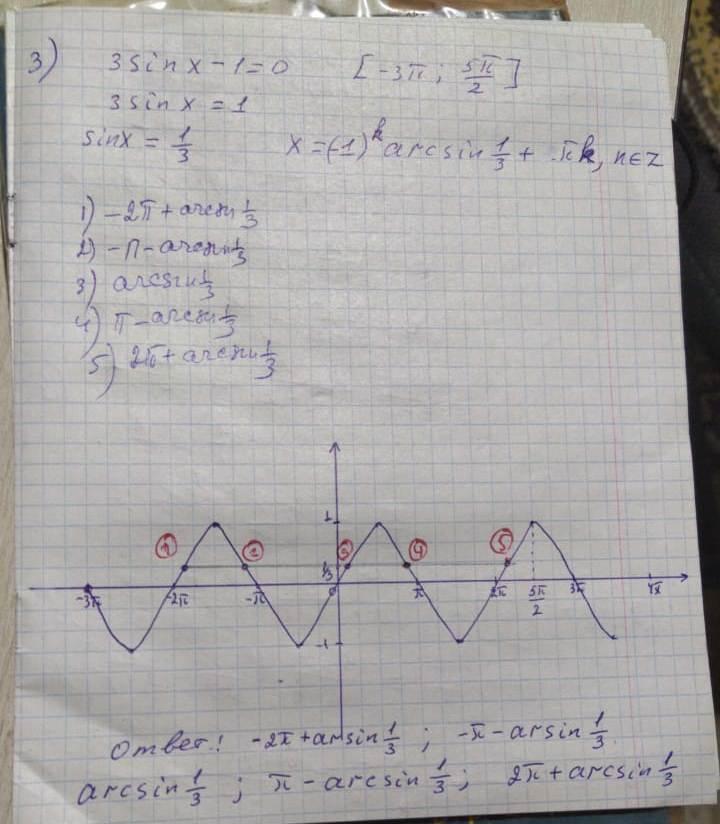 3) 3sinx-1=0 [-3π; 5π/2]
3sinx=1
sinx=1/3 x=(-1)^k arcsin 1/3 + πk, n∈Z
1) -2π+arcsin 1/3
2) -π-arcsin 1/3
3) arcsin 1/3
4) π-arcsin 1/3
5) 2π+arcsin 1/3
1
① ② ③ ④ ⑤
1/3
-3π -2π -π 0 π 2π 5π/2 3π 4π
-1
Ответ: -2π+arsin 1/3; -π-arsin 1/3.
arcsin 1/3; π-arcsin 1/3; 2π+arcsin 1/3